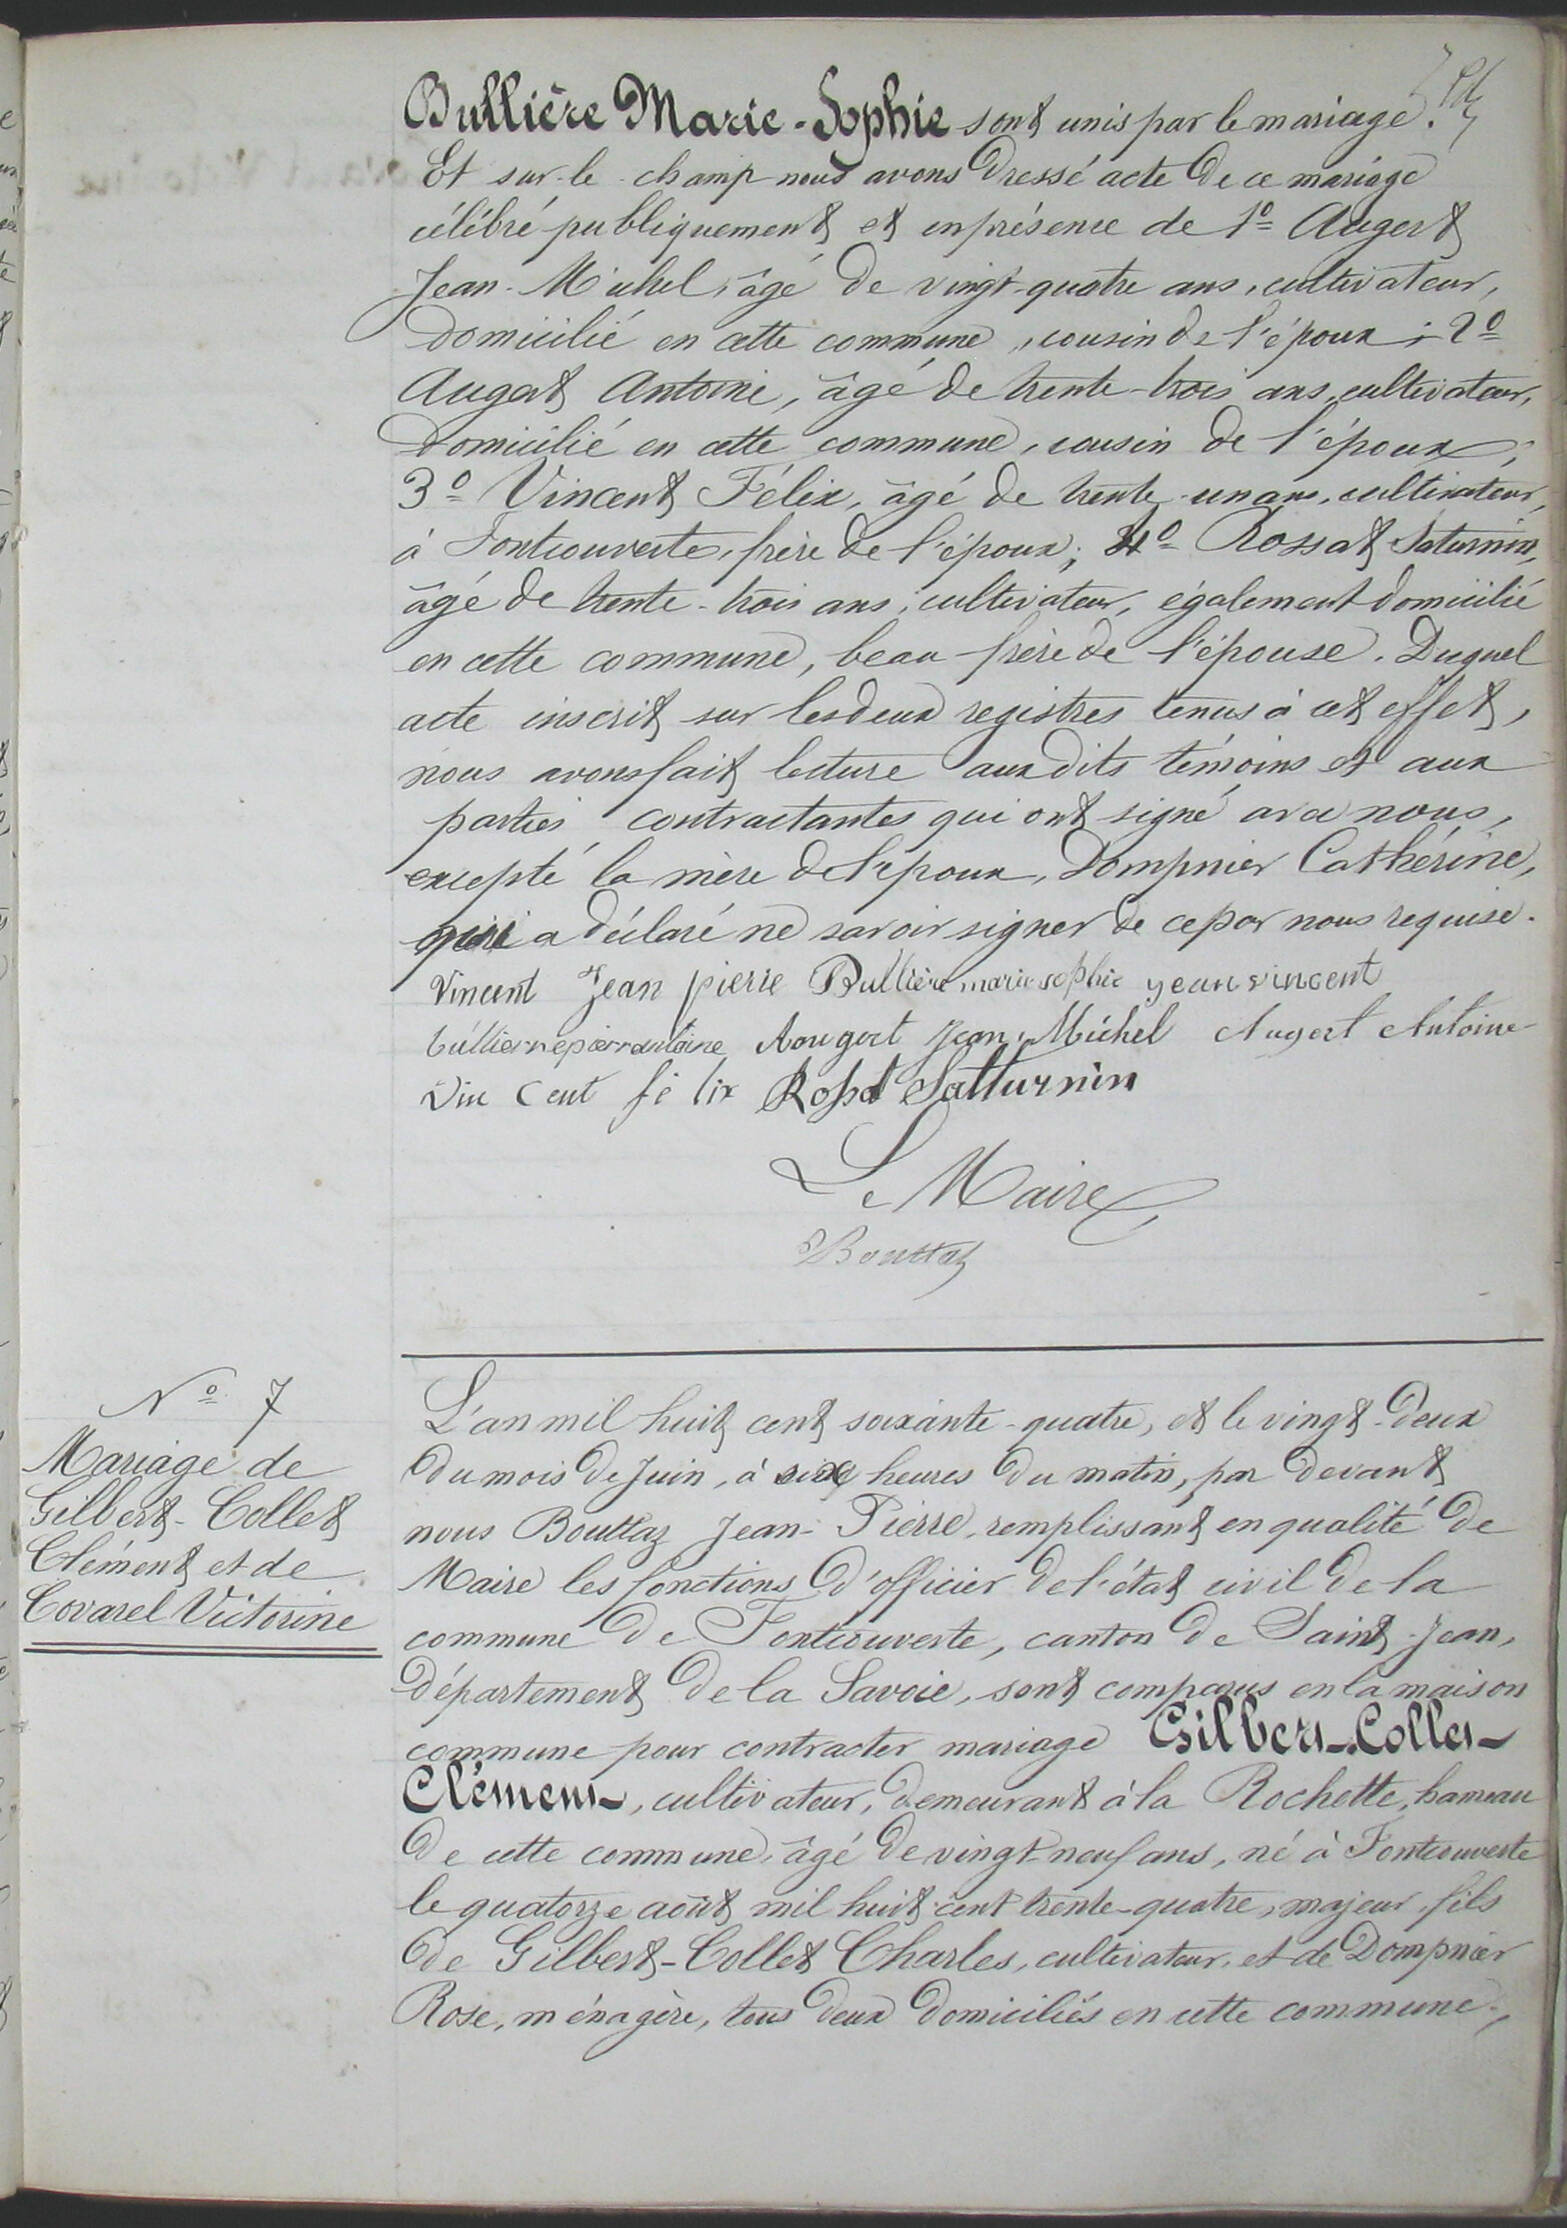 Bullière Marie-Sophie sont unis par le mariage.
Et sur-le-champ nous avons dressé acte de ce mariage
célébré publiquement et en présence de 1º Augert
Jean-Michel, âgé de vingt-quatre ans, cultivateur,
domicilié en cette commune, cousin de l'époux; 2º
Augert Antoine, âgé de trente-trois ans, cultivateur,
domicilié en cette commune, cousin de l'époux;
3º Vincent Félix, âgé de trente-un ans, cultivateur,
à Fontcouverte, frère de l'époux; 4º Rossat Saturnin,
âgé de trente-trois ans, cultivateur, également domicilié
en cette commune, beau-frère de l'épouse. Duquel
acte inscrit sur les deux registres tenus à cet effet,
nous avons fait lecture aux dits témoins et aux
parties contractantes qui ont signé avec nous,
excepté la mère de l'époux, Dompnier Cathérine,
qui a déclaré ne savoir signer de ce par nous requise.
Vincent Jean pierre Bullière marie sophie jean vincent
bullierre pierre antoine Aougert Jean Michel Augert Antoine
Vin cent fé lix Rossat Satturnin
Le Maire
Bouttaz
Nº 7
Mariage de
Gilbert-Collet
Clément et de
Covarel Victorine
L'an mil huit cent soixante-quatre, et le vingt-deux
du mois de Juin, à six heures du matin, par devant
nous Bouttaz Jean-Pierre, remplissant en qualité de
Maire les fonctions d'officier de l'état civil de la
commune de Fontcouverte, canton de Saint-Jean,
département de la Savoie, sont comparus en la maison
commune pour contracter mariage Gilbert-Collet
Clément, cultivateur, demeurant à la Rochette, hameau
de cette commune, âgé de vingt-neuf ans, né à Fontcouverte
le quatorze août mil huit cent trente-quatre, majeur, fils
de Gilbert-Collet Charles, cultivateur, et de Dompnier
Rose, ménagère, tous deux domiciliés en cette commune,